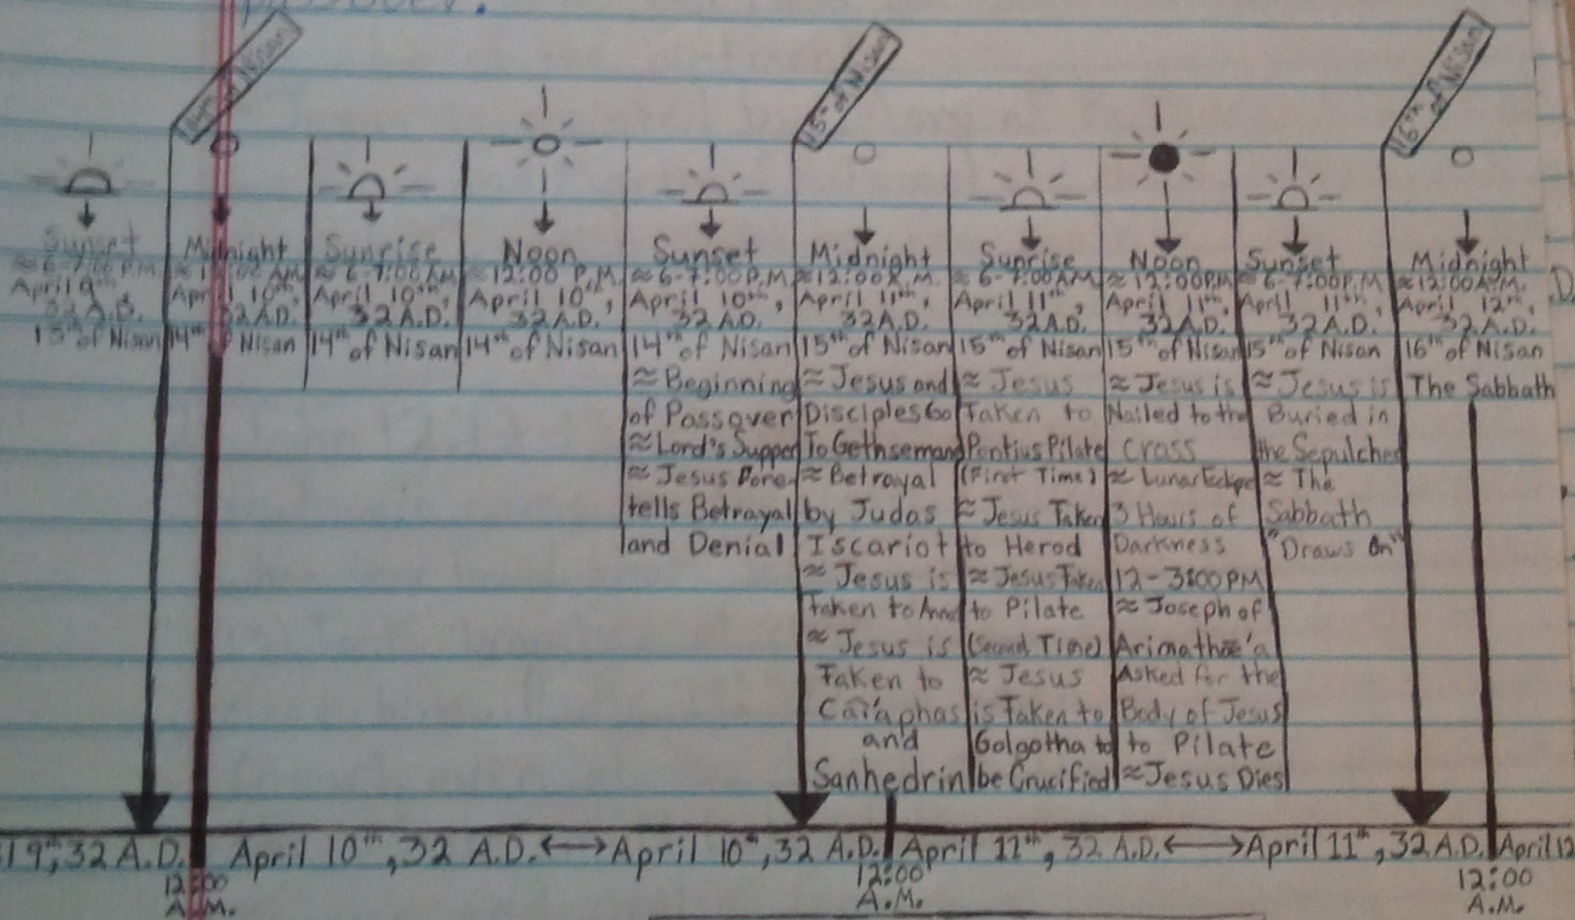 passover.
14th of Nisan
15th of Nisan
16th of Nisan
Sunset
≈ 6-7:00 P.M.
April 9th
32 A.D.
13th of Nisan
Midnight
April 10th,
32 A.D.
14th of Nisan
Sunrise
≈ 6-7:00 AM
April 10th,
32 A.D.
14th of Nisan
Noon
≈ 12:00 P.M.
April 10th,
32 A.D.
14th of Nisan
Sunset
≈ 6-7:00 P.M
April 10th,
32 A.D.
14th of Nisan
≈ Beginning
of Passover
≈ Lord's Supper
≈ Jesus Fore-
tells Betrayal
and Denial
Midnight
≈ 12:00 A.M.
April 11th,
32 A.D.
15th of Nisan
≈ Jesus and
Disciples Go
To Gethsemane
≈ Betrayal
by Judas
Iscariot
≈ Jesus is
Taken to Annas
≈ Jesus is
Taken to
Cai'aphas
and
Sanhedrin
Sunrise
≈ 6-7:00 AM
April 11th,
32 A.D.
15th of Nisan
≈ Jesus
Taken to
Pontius Pilate
(First Time)
≈ Jesus Taken
to Herod
≈ Jesus Taken
to Pilate
(Second Time)
≈ Jesus
is Taken to
Golgotha to
be Crucified
Noon
≈ 12:00 PM
April 11th,
32 A.D.
15th of Nisan
≈ Jesus is
Nailed to the
Cross
≈ Lunar Eclipse
3 Hours of
Darkness
12-3:00 PM
≈ Joseph of
Arimathæ'a
Asked for the
Body of Jesus
to Pilate
≈ Jesus Dies
Sunset
≈ 6-7:00 P.M.
April 11th,
32 A.D.
15th of Nisan
≈ Jesus is
Buried in
the Sepulcher
≈ The
Sabbath
"Draws On"
Midnight
≈ 12:00 A.M.
April 12th,
32 A.D.
16th of Nisan
The Sabbath
D
19th, 32 A.D. April 10th, 32 A.D. ⟷ April 10th, 32 A.D. April 11th, 32 A.D. ⟷ April 11th, 32 A.D. April 12
12:00 12:00 12:00
A.M. A.M. A.M.